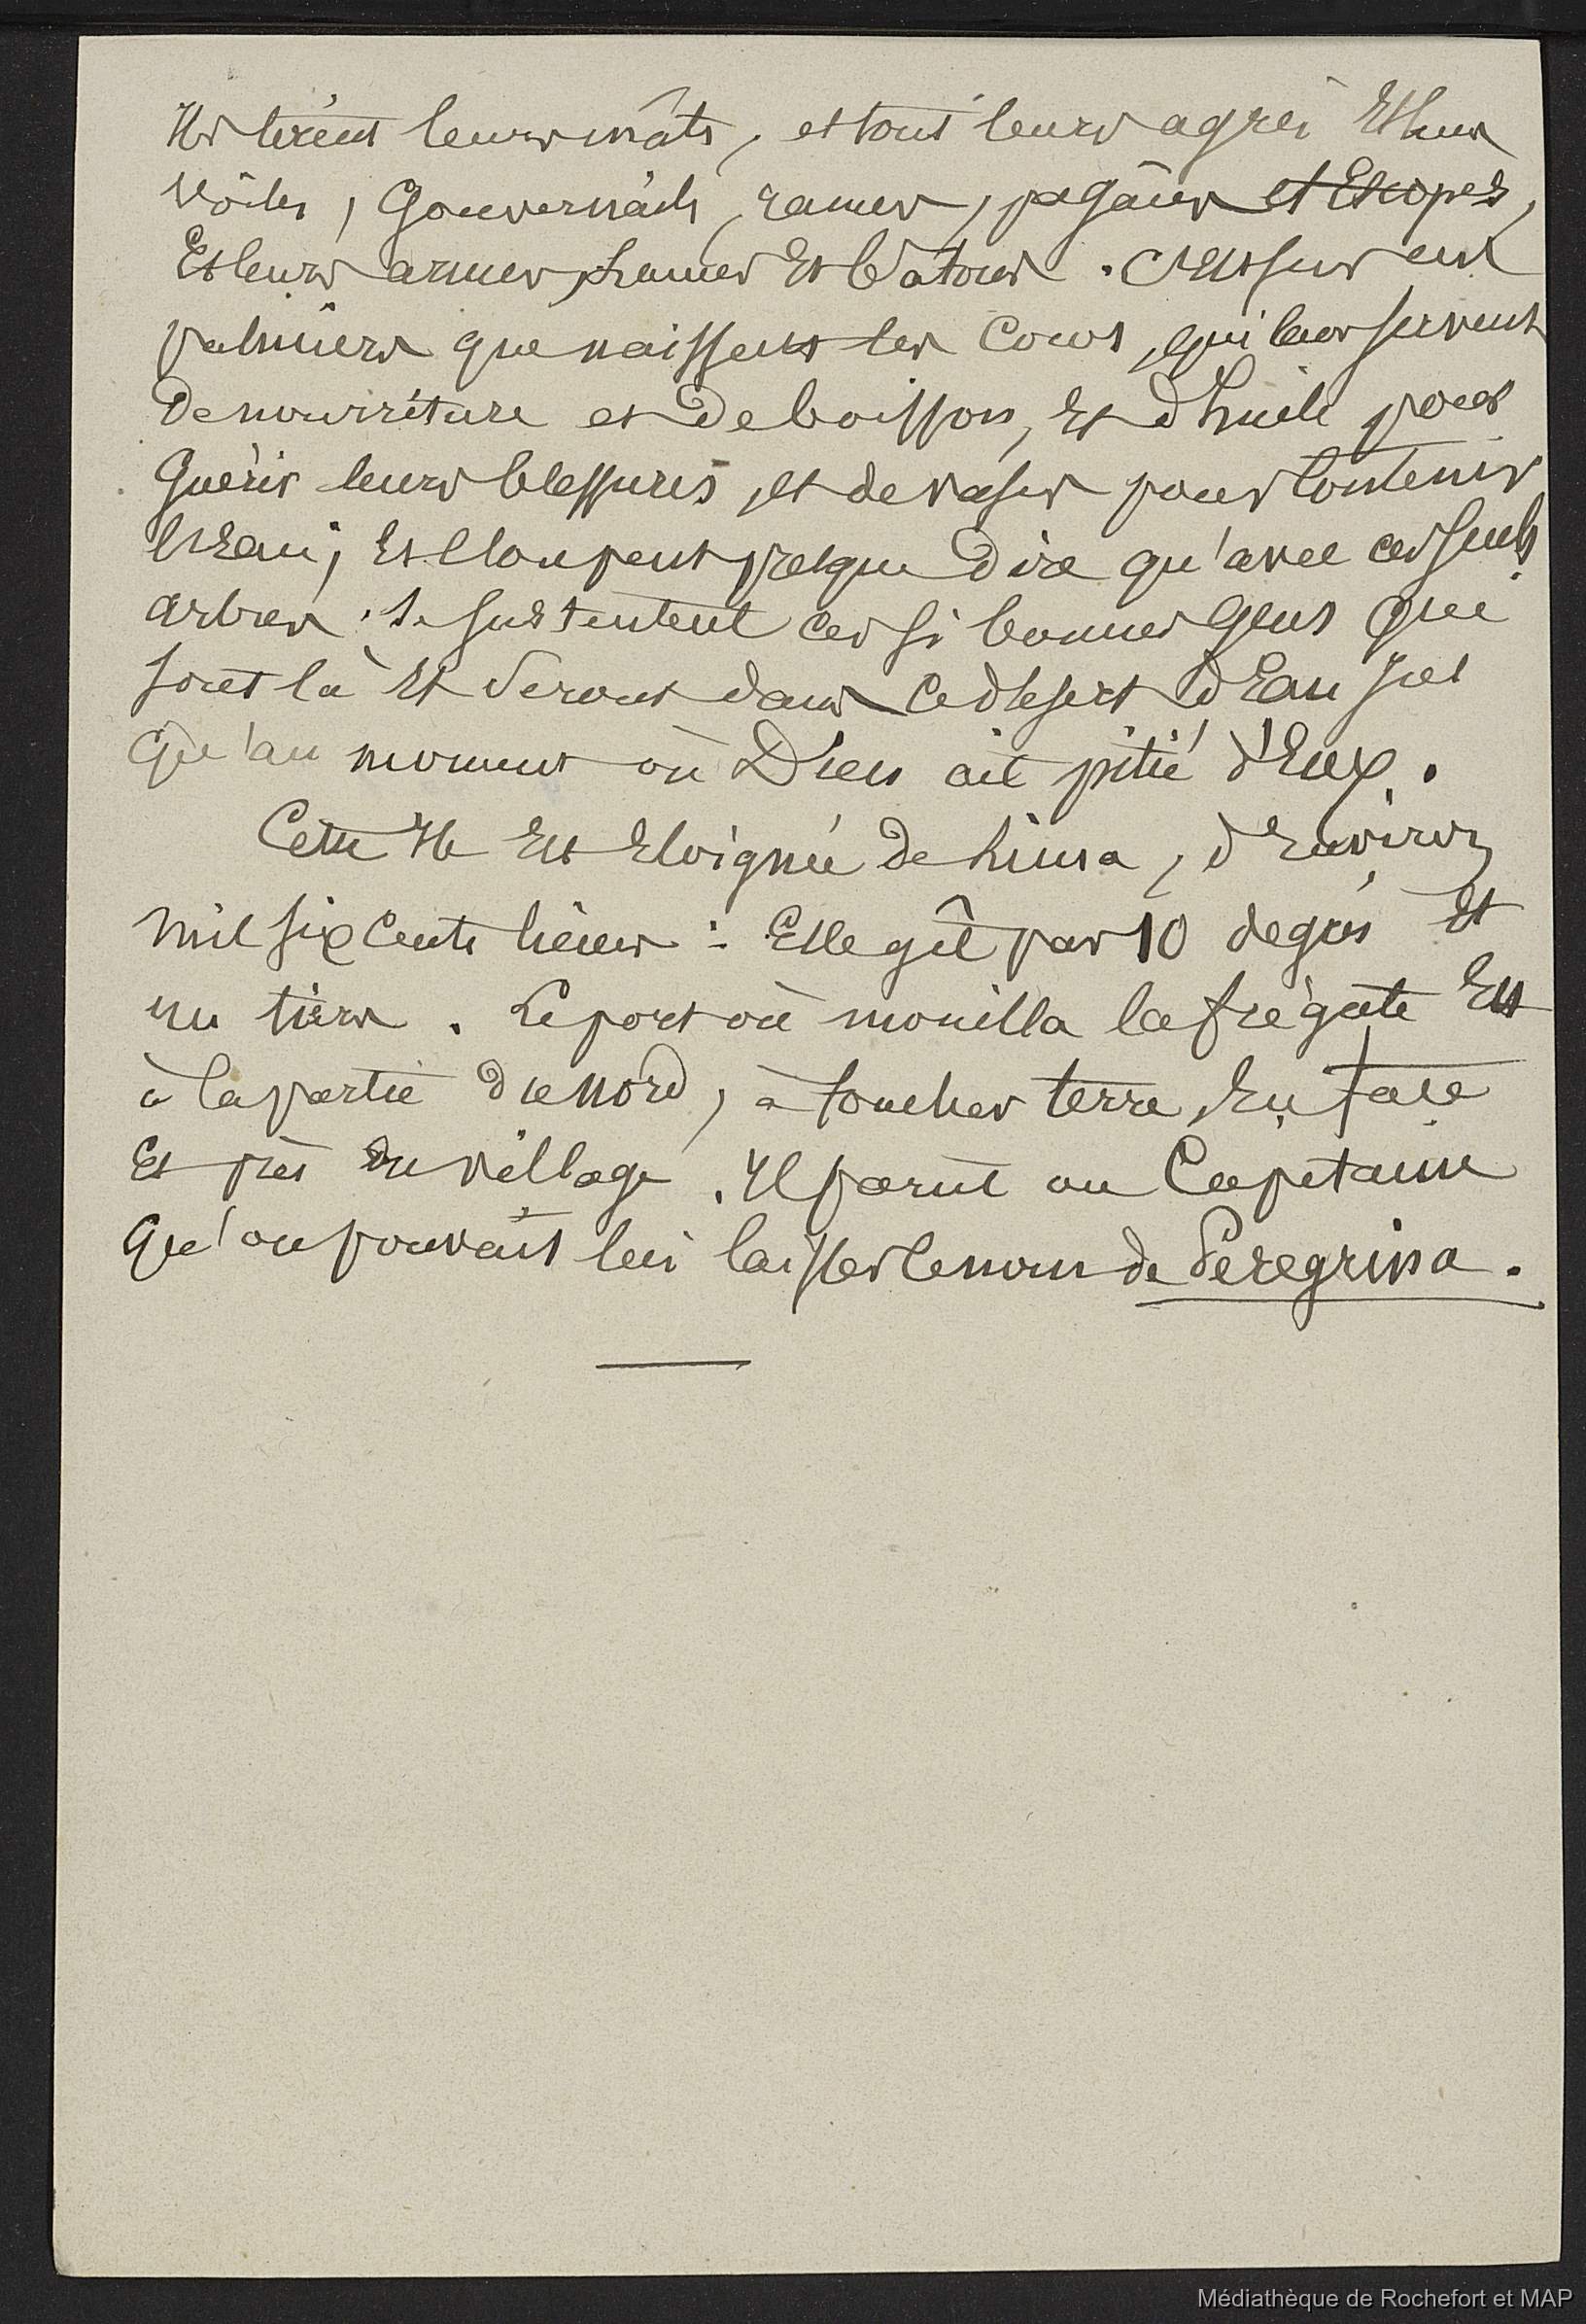 Ils tirent leurs mâts, et tous leurs agrès Et leurs
voiles, Gouvernails, rames, pagaies et Escopes,
Et leurs armes, lances Et bâtons. C'est sur ces
palmiers que naissent les Cocos, qui leur servent
de nourriture et de boisson, Et d'huile pour
Guérir leurs blessures, et de vases pour Contenir
l'Eau; Et l'on peut presque dire qu'avec ces seuls
arbres se sustentent ces si bonnes Gens Qui
sont là Et Seront dans ce désert d'Eau jus
Qu'au moment où Dieu ait pitié d'Eux.
Cette Ile Est Eloignée de Lima, d'Environ
mil six Cents lieues : Elle gît par 10 degrés Et
un tiers. Le port où mouilla la frégate Est
à la partie du Nord, à toucher terre, En face
Et près du village. Il parut au Capitaine
Qu'on pouvait lui laisser le nom de Peregrina.
Médiathèque de Rochefort et MAP